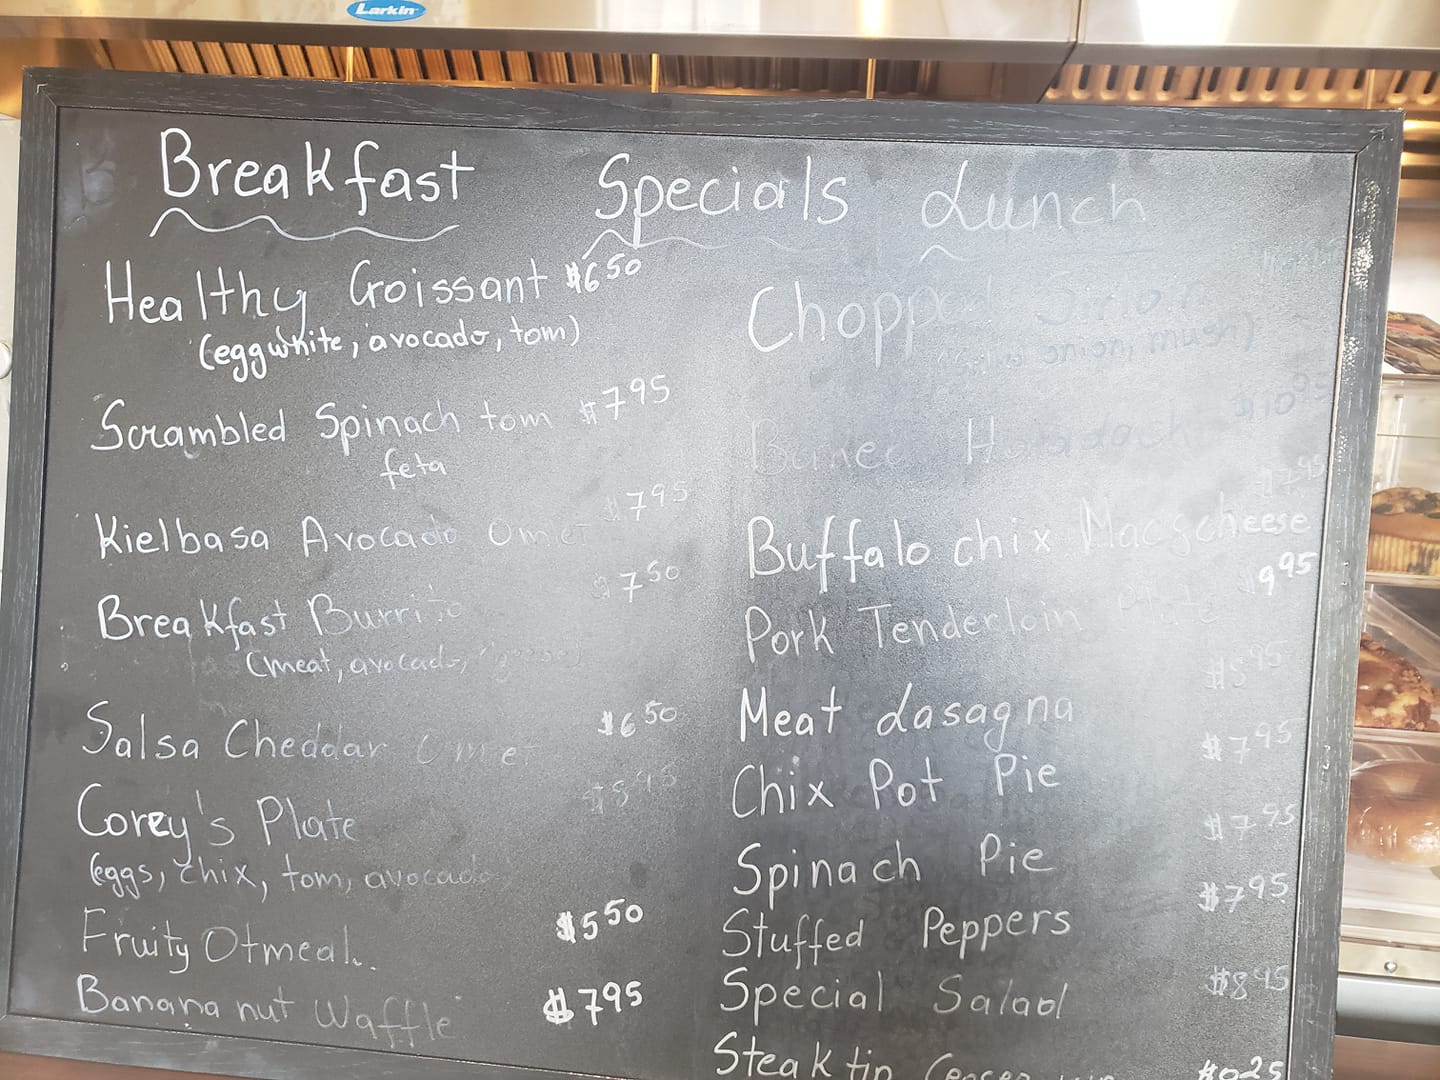 Larkin
Breakfast Specials Lunch
Healthy Croissant $6.50
(eggwhite, avocado, tom)
Scrambled Spinach tom $7.95
feta
Kielbasa Avocado Ome $7.95
Breakfast Burrito $7.50
(meat, avocado,
Salsa Cheddar Ome $6.50
Corey's Plate
(eggs, chix, tom, avocado
Fruity Otmeal. $5.50
Banana nut Waffle $7.95
Chopped Sirloin
onion, mush)
$10.95
$7.95
Buffalo chix Mac&cheese
Pork Tenderloin Plate $9.95
Meat Lasagna
Chix Pot Pie $7.95
Spinach Pie $7.95
Stuffed Peppers $7.95
Special Salad $8.95
Steak tip